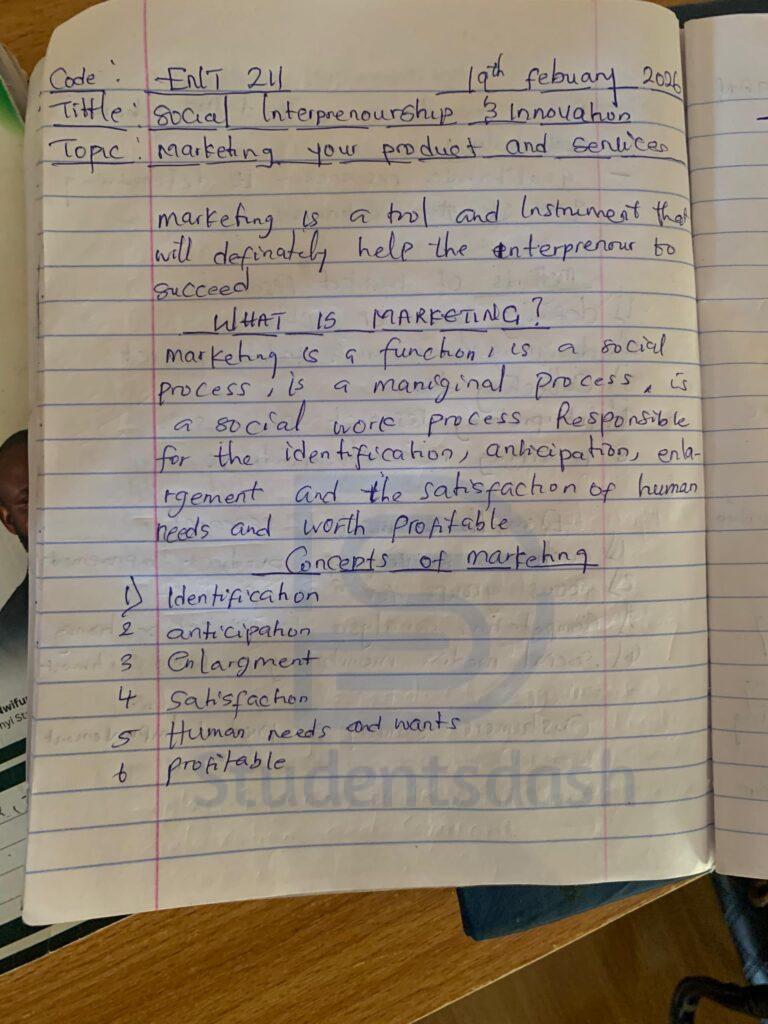 Code : ENT 211 19th febuary 2026
Tittle : Social Interprenourship & Innovation
Topic : Marketing your product and services
marketing is a tool and Instrument that
will definately help the enterprenour to
succeed
WHAT IS MARKETING?
marketing is a function, is a social
process, is a maniginal process, is
a social work process Responsible
for the identification, anticipation, enla-
rgement and the satisfaction of human
needs and worth profitable
Concepts of marketing
1) Identification
2 anticipation
3 Enlargment
4 Satisfaction
5 Human needs and wants
6 profitable
Studentsdash